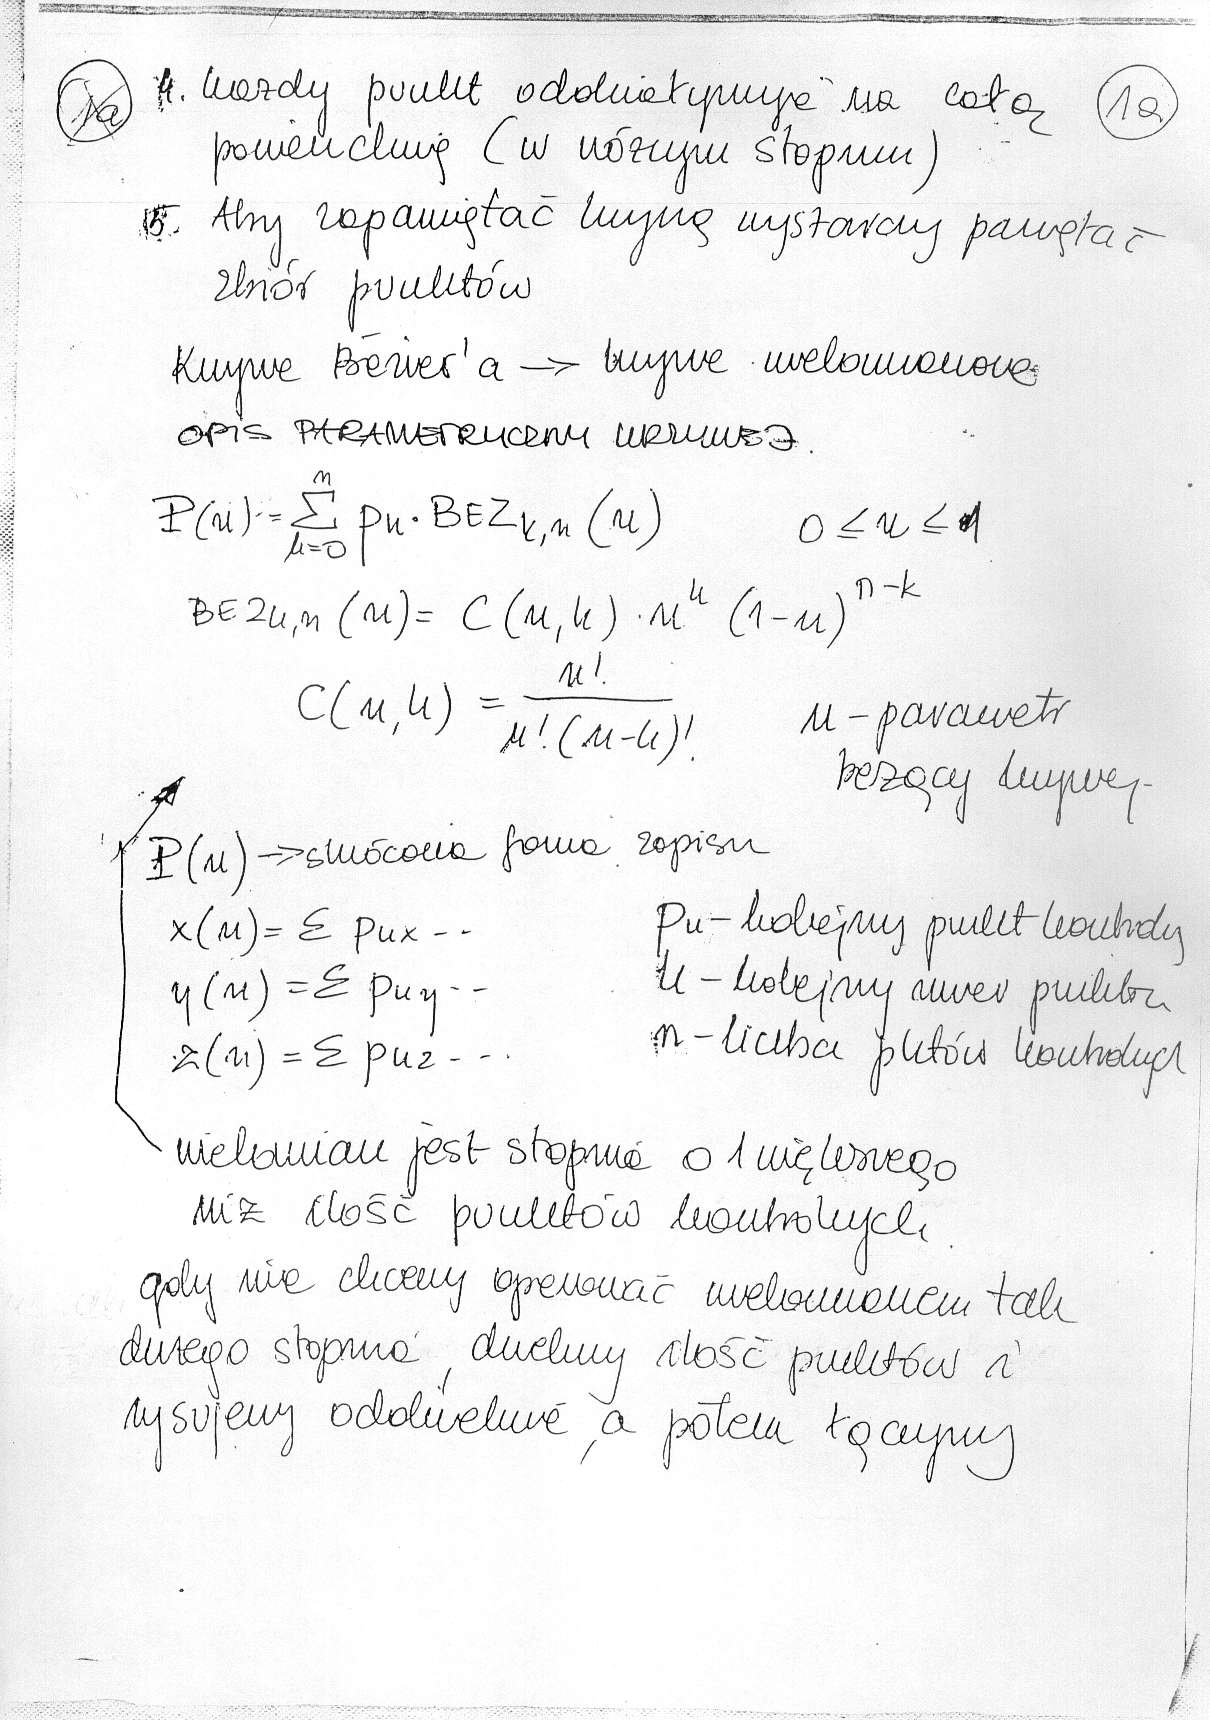 1a
4. każdy punkt oddziaływuje na całą 1a
powierzchnię (w różnym stopniu)
5. Aby zapamiętać krzywą wystarczy pamiętać
zbiór punktów
Krzywe Bézier'a → krzywe wielomianowe
OPIS PARAMETRYCZNY KRZYWEJ.
P(u) = Σ_{k=0}^{n} pk · BEZ_{k,n}(u) 0 ≤ u ≤ 1
BEZ_{k,n}(u) = C(n,k) · u^k (1-u)^{n-k}
C(n,k) = n! / k!(n-k)!
u - parametr
bezący krzywej
P(u) → skrócona forma zapisu
x(u) = Σ pkx --
y(u) = Σ pky --
z(u) = Σ pkz ---
pk - kolejny punkt kontrolny
k - kolejny numer punktu
n - liczba pktów kontrolnych
wielomian jest stopnia o 1 większego
niż ilość punktów kontrolnych
gdy nie chcemy operować wielomianem tak
dużego stopnia, dzielimy ilość punktów i
rysujemy oddzielnie, a potem łączymy